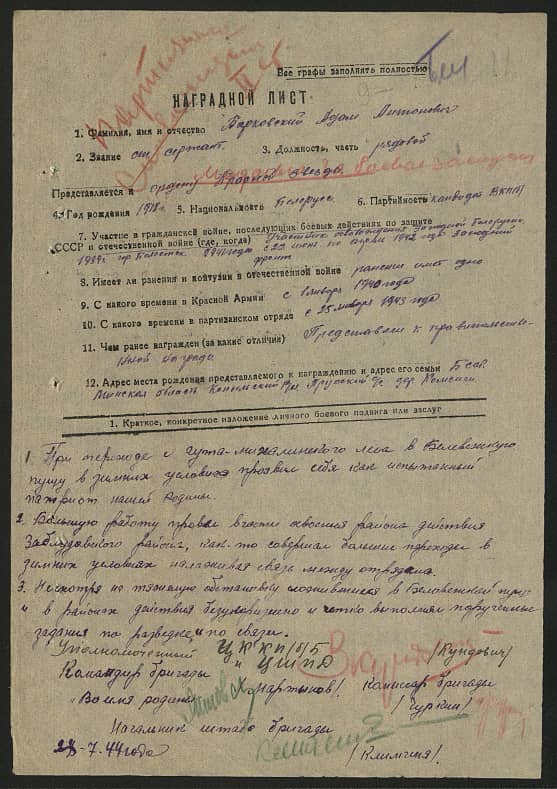 Все графы заполнять полностью
НАГРАДНОЙ ЛИСТ
1. Фамилия, имя и отчество Барковский Адам Антонович
2. Звание ст. сержант 3. Должность, часть рядовой
Представляется к ордену Красная Звезда
4. Год рождения 1918 г. 5. Национальность Белорус 6. Партийность кандидат ВКП(б)
7. Участие в гражданской войне, последующих боевых действиях по защите
СССР и отечественной войне (где, когда) Участник освобождения Западной Белоруссии
1939 г. 1941 года с 22 июня по 1942 год Западный
фронт
8. Имеет ли ранения и контузии в отечественной войне ранение имел одно
9. С какого времени в Красной Армии с 1940 года
10. С какого времени в партизанском отряде с 25 января 1943 года
11. Чем ранее награжден (за какие отличия) Представлен к правительст-
венной награде
12. Адрес места рождения представляемого к награждению и адрес его семьи БССР
Минская область Копыльский с/с дер.
1. Краткое, конкретное изложение личного боевого подвига или заслуг
1. При переходе с гута-михалинского леса в Беловежскую
пущу в зимних условиях проявил себя как испытанный
патриот нашей Родины.
2. Большую работу провел в части освоения района действия
Заблудовского района, как-то совершал большие переходы в
зимних условиях налаживая связь между отрядами.
3. Несмотря на тяжелую обстановку сложившиеся в Беловежской пуще
и в районах действия безукоризненно и четко выполнял порученные
задания по разведке и по связи.
Уполномоченный ЦККП(б)Б
и ЦШПД /Кундович/
Командир бригады Комисар бригады
"Во имя родины" /Мартынов/ /Чуркин/
Начальник штаба бригады
28-7.44 года /Климчня/